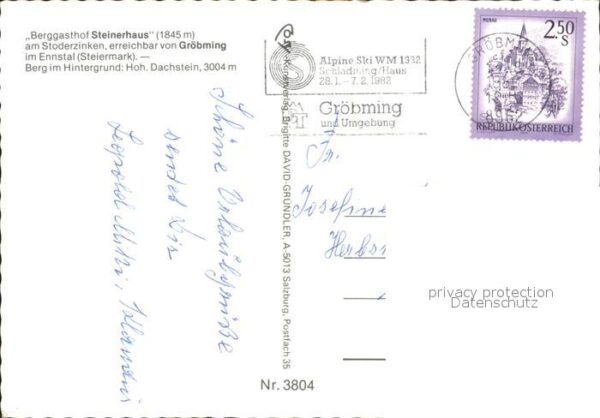 „Berggasthof Steinerhaus" (1845 m)
am Stoderzinken, erreichbar von Gröbming
im Ennstal (Steiermark). —
Berg im Hintergrund: Hoh. Dachstein, 3004 m
Alpine Ski WM 1982
Schladming/Haus
28.1. - 7.2. 1982
Gröbming
und Umgebung
GRÖBMING
8962
MURAU
2.50
S
REPUBLIK ÖSTERREICH
Kunstverlag, Brigitte DAVID-GRÜNDLER, A-5013 Salzburg, Postfach 35
Schöne Urlaubsgrüße
sendet Dir
Leopold Mitzi,
Fr.
Josefine
privacy protection
Datenschutz
Nr. 3804